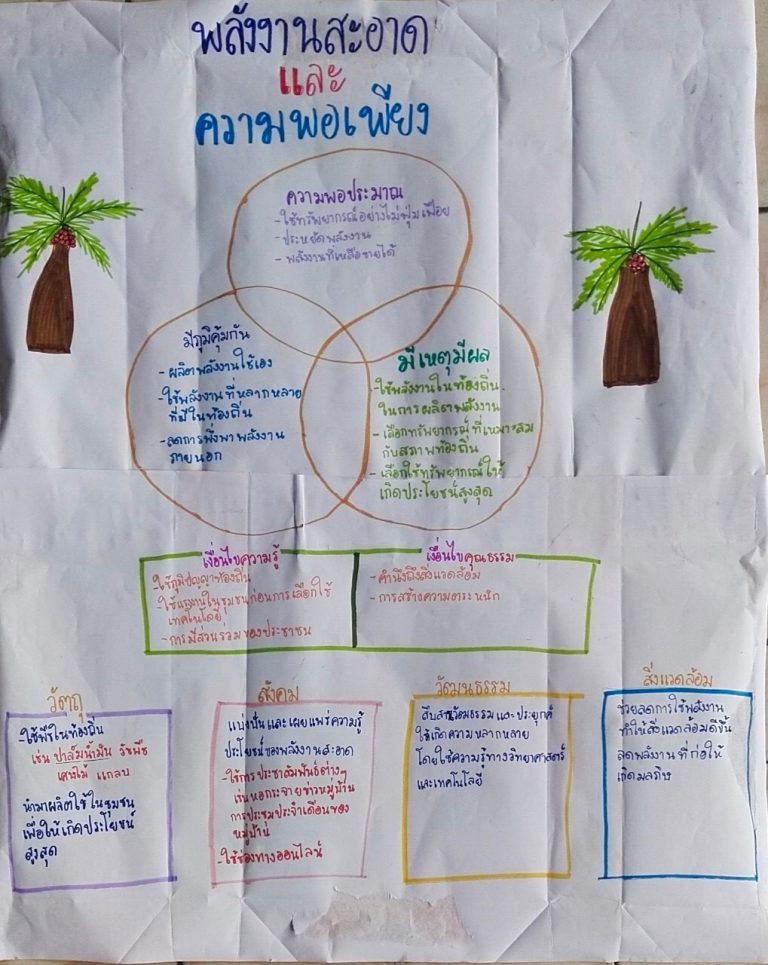 พลังงานสะอาด
และ
ความพอเพียง
ความพอประมาณ
-ใช้ทรัพยากรณ์อย่างไม่ฟุ่มเฟือย
-ประหยัดพลังงาน
- พลังงานที่เหลือขายได้
มีภูมิคุ้มกัน
- ผลิตพลังงานใช้เอง
-ใช้พลังงานที่หลากหลาย
ที่มีในท้องถิ่น
-ลดการพึ่งพาพลังงาน
ภายนอก
มีเหตุมีผล
-ใช้พลังงานในท้องถิ่น
ในการผลิตพลังงาน
-เลือกทรัพยากรณ์ที่เหมาะสม
กับสภาพท้องถิ่น
-เลือกใช้ทรัพยากรณ์ให้
เกิดประโยชน์สูงสุด
เงื่อนไขความรู้
-ใช้ภูมิปัญญาท้องถิ่น
-ใช้แรงงานในชุมชนก่อนการเลือกใช้
เทคโนโลยี
-การมีส่วนร่วมของประชาชน
เงื่อนไขคุณธรรม
-คำนึงถึงสิ่งแวดล้อม
-การสร้างความตระหนัก
วัตถุ
-ใช้พืชในท้องถิ่น
เช่น ปาล์มน้ำมัน วัชพืช
เศษไม้ แกลบ
นำมาผลิตใช้ในชุมชน
เพื่อให้เกิดประโยชน์
สูงสุด
สังคม
แบ่งปันและเผยแพร่ความรู้
ประโยชน์ของพลังงานสะอาด
-ใช้การประชาสัมพันธ์ต่างๆ
เช่นหอกระจายข่าวหมู่บ้าน
การประชุมประจำเดือนของ
หมู่บ้าน
-ใช้ช่องทางออนไลน์
วัฒนธรรม
และ ประยุกต์
ให้เกิดความหลากหลาย
โดยใช้ความรู้ทางวิทยาศาสตร์
และเทคโนโลยี
สิ่งแวดล้อม
ช่วยลดการใช้พลังงาน
ทำให้สิ่งแวดล้อมดีขึ้น
ลดพลังงานที่ก่อให้
เกิดมลภิษ